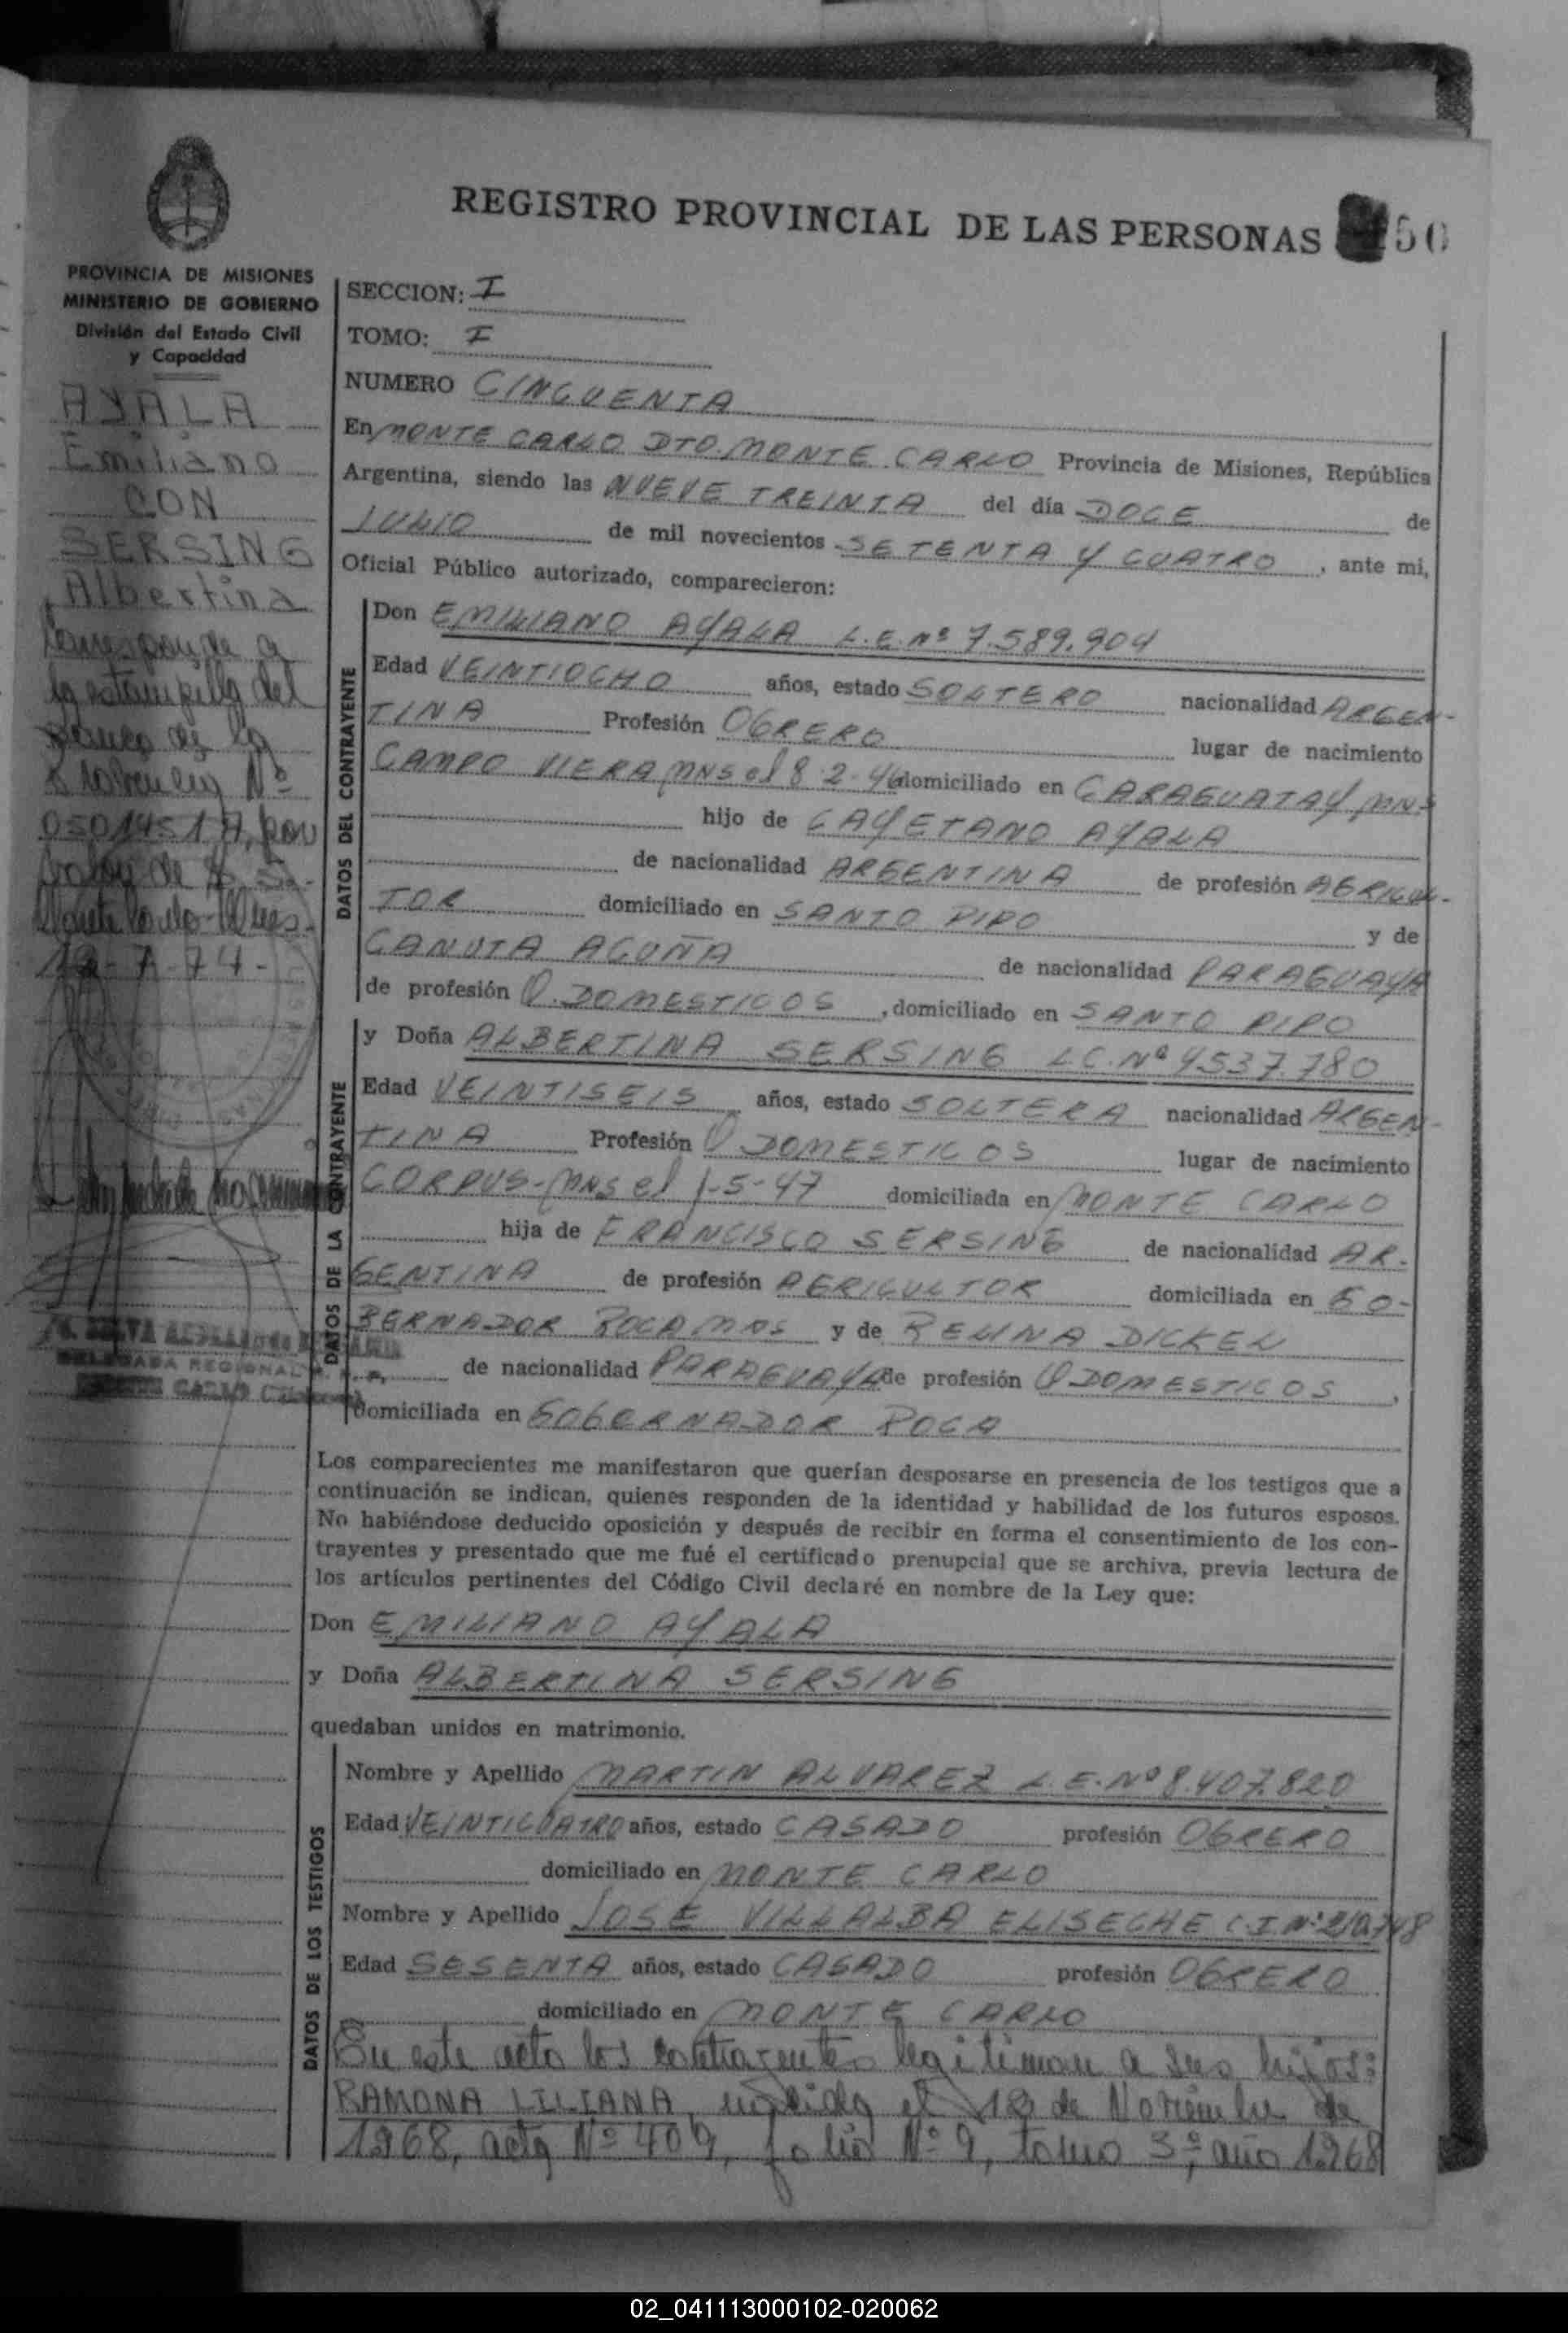 REGISTRO PROVINCIAL DE LAS PERSONAS 50
PROVINCIA DE MISIONES
MINISTERIO DE GOBIERNO
División del Estado Civil
y Capacidad
AYALA
Emiliano
CON
SERSING
Albertina
Corresponde a
la estampilla del
de la
Nº
0501451 A, por
valor de $
Monte Carlo Mnes.
12-7-74-
DELEGADA REGIONAL
SECCION: I
TOMO: I
NUMERO CINCUENTA
En MONTE CARLO DTO. MONTE CARLO Provincia de Misiones, República
Argentina, siendo las NUEVE TREINTA del día DOCE de
JULIO de mil novecientos SETENTA Y CUATRO, ante mi,
Oficial Público autorizado, comparecieron:
DATOS DEL CONTRAYENTE
Don EMILIANO AYALA L.E. Nº 7.589.904
Edad VEINTIOCHO años, estado SOLTERO nacionalidad ARGEN-
TINA Profesión OBRERO lugar de nacimiento
CAMPO VIERA MNS el 8-2-46 domiciliado en CARAGUATAY MNS
hijo de CAYETANO AYALA
de nacionalidad ARGENTINA de profesión AGRICUL-
TOR domiciliado en SANTO PIPO y de
CANUTA ACUÑA de nacionalidad PARAGUAYA
de profesión Q. DOMESTICOS, domiciliado en SANTO PIPO
DATOS DE LA CONTRAYENTE
y Doña ALBERTINA SERSING L.C. Nº 4537.780
Edad VEINTISEIS años, estado SOLTERA nacionalidad ARGEN-
TINA Profesión Q DOMESTICOS lugar de nacimiento
CORPUS-MNS el 1-5-47 domiciliada en MONTE CARLO
hija de FRANCISCO SERSING de nacionalidad AR-
GENTINA de profesión AGRICULTOR domiciliada en GO-
BERNADOR ROCA MNS y de RELINA DICKEL
de nacionalidad PARAGUAYA de profesión Q DOMESTICOS,
domiciliada en GOBERNADOR ROCA
Los comparecientes me manifestaron que querían desposarse en presencia de los testigos que a
continuación se indican, quienes responden de la identidad y habilidad de los futuros esposos.
No habiéndose deducido oposición y después de recibir en forma el consentimiento de los con-
trayentes y presentado que me fué el certificado prenupcial que se archiva, previa lectura de
los artículos pertinentes del Código Civil declaré en nombre de la Ley que:
Don EMILIANO AYALA
y Doña ALBERTINA SERSING
quedaban unidos en matrimonio.
DATOS DE LOS TESTIGOS
Nombre y Apellido MARTIN ALVAREZ L.E. Nº 8.407.820
Edad VEINTICUATRO años, estado CASADO profesión OBRERO
domiciliado en MONTE CARLO
Nombre y Apellido JOSE VILLALBA ELISECHE C.I. Nº 210.748
Edad SESENTA años, estado CASADO profesión OBRERO
domiciliado en MONTE CARLO
En este acto los contrayentes legitiman a sus hijos:
RAMONA LILIANA, nacida el 12 de Noviembre de
1968, acta Nº 409, folio Nº 9, tomo 3º, año 1968
02_041113000102-020062